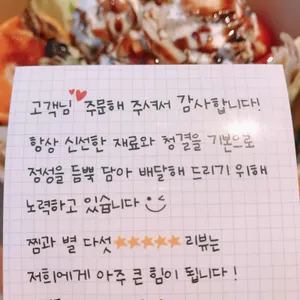 고객님 주문해 주셔서 감사합니다!
항상 신선한 재료와 청결을 기본으로
정성을 듬뿍 담아 배달해 드리기 위해
노력하고 있습니다
찜과 별 다섯 ★★★★★ 리뷰는
저희에게 아주 큰 힘이 됩니다!